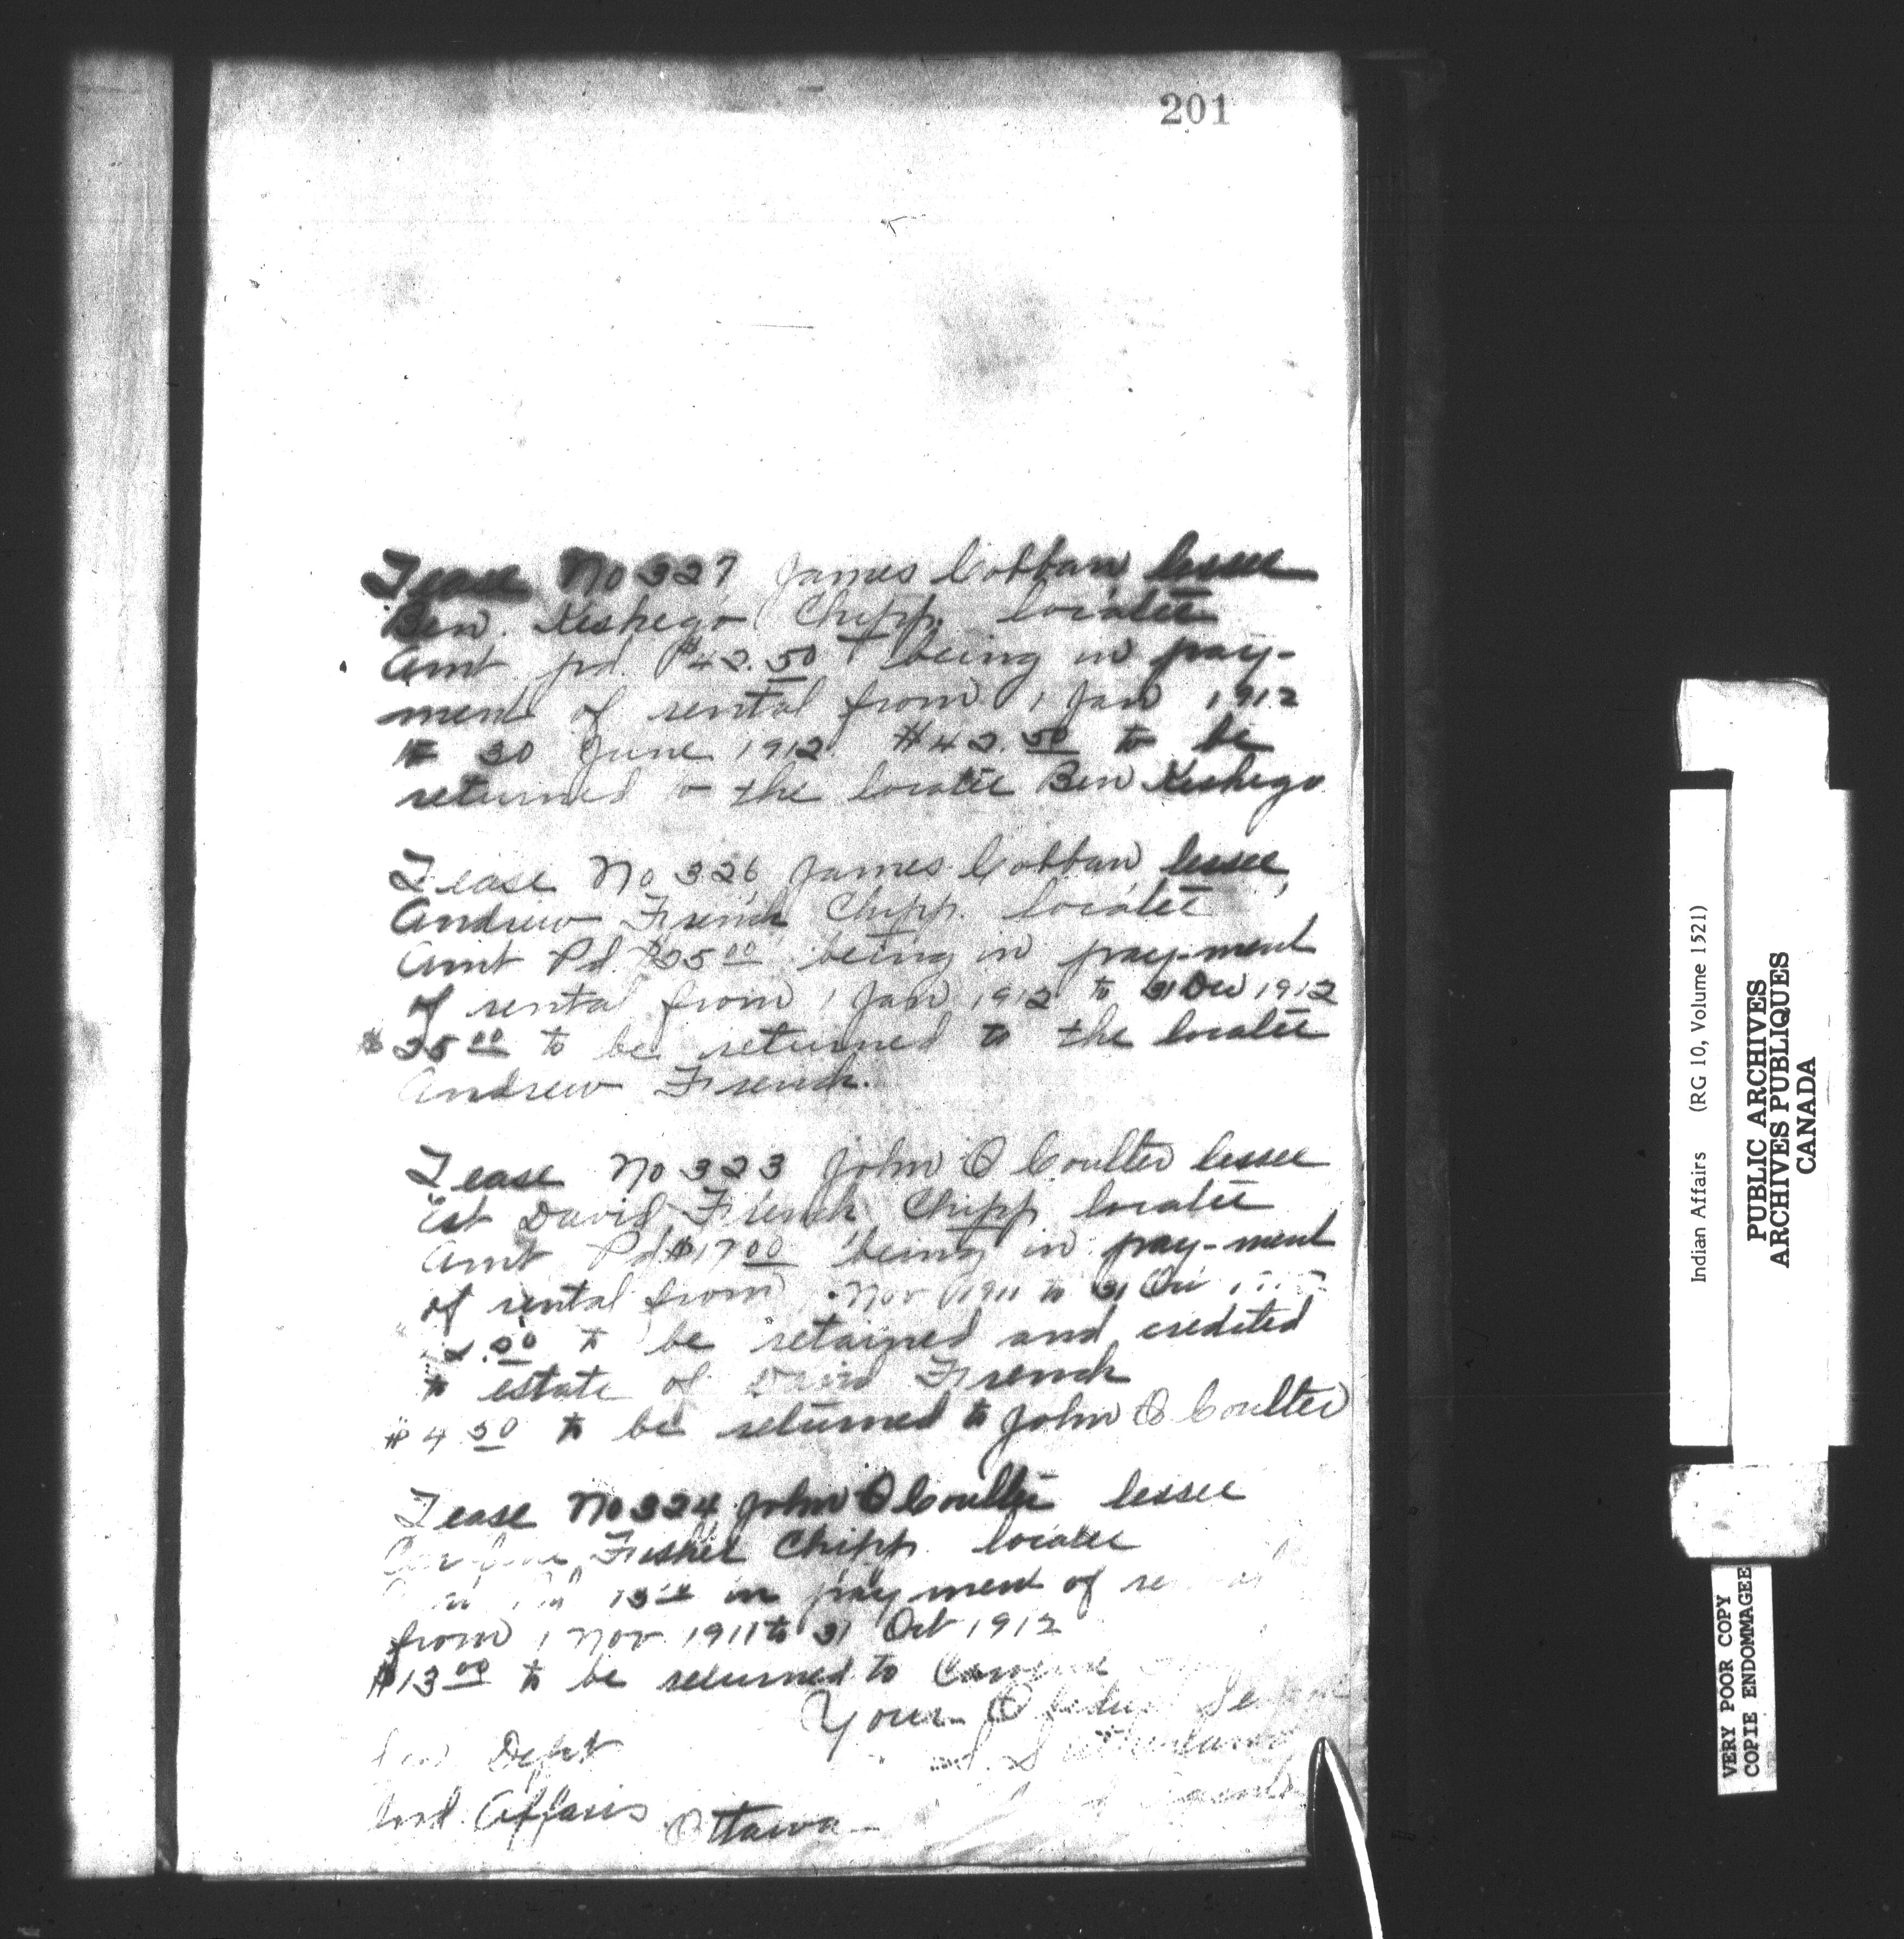 201
Lease No 327 James Cobban lessee
Ben. Keshego Chipp. locatee
Amt pd. $42.50 being in pay-
ment of rental from 1 Jan 1912
to 30 June 1912. $42.50 to be
returned to the locatee Ben Keshego
Lease No 326 James Cobban lessee,
Andrew French Chipp. locatee
Amt Pd. $25.00 being in pay-ment
of rental from 1 Jan 1912 to 31 Dec 1912
$25.00 to be returned to the locatee
Andrew French.
Lease No 323 John O Coulter lessee
Est David French Chipp locatee
Amt Pd $17.00 being in pay-ment
of rental from Nov 1911 to 31
to be retained and credited
to estate of David French
$4.50 to be returned to John O Coulter
Lease No 324 John O Coulter lessee
Fisher Chipp. locatee
13.00 in payment of
from 1 Nov. 1911 to 31 Oct 1912
$13.00 to be returned to
Your Obedient
Dept
Ind. Affairs Ottawa
Indian Affairs (RG 10, Volume 1521)
PUBLIC ARCHIVES
ARCHIVES PUBLIQUES
CANADA
VERY POOR COPY
COPIE ENDOMMAGEE